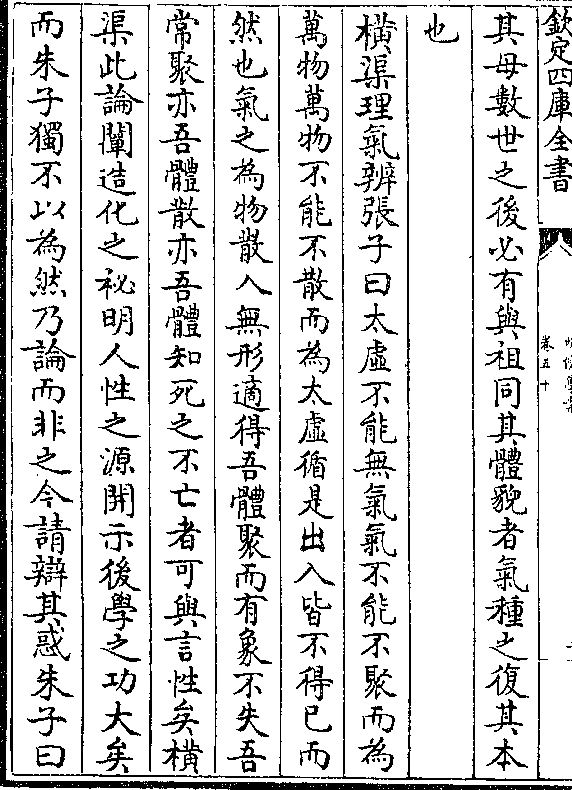 欽定四庫全書
卷五十
其母數世之後必有與祖同其體貌者氣種之復其本
也
橫渠理氣辨張子曰太虛不能無氣氣不能不聚而為
萬物萬物不能不散而為太虛循是出入皆不得已而
然也氣之為物散入無形適得吾體聚而有象不失吾
常聚亦吾體散亦吾體知死之不亡者可與言性矣橫
渠此論闡造化之秘明人性之源開示後學之功大矣
而朱子獨不以為然乃論而非之今請辯其惑朱子曰